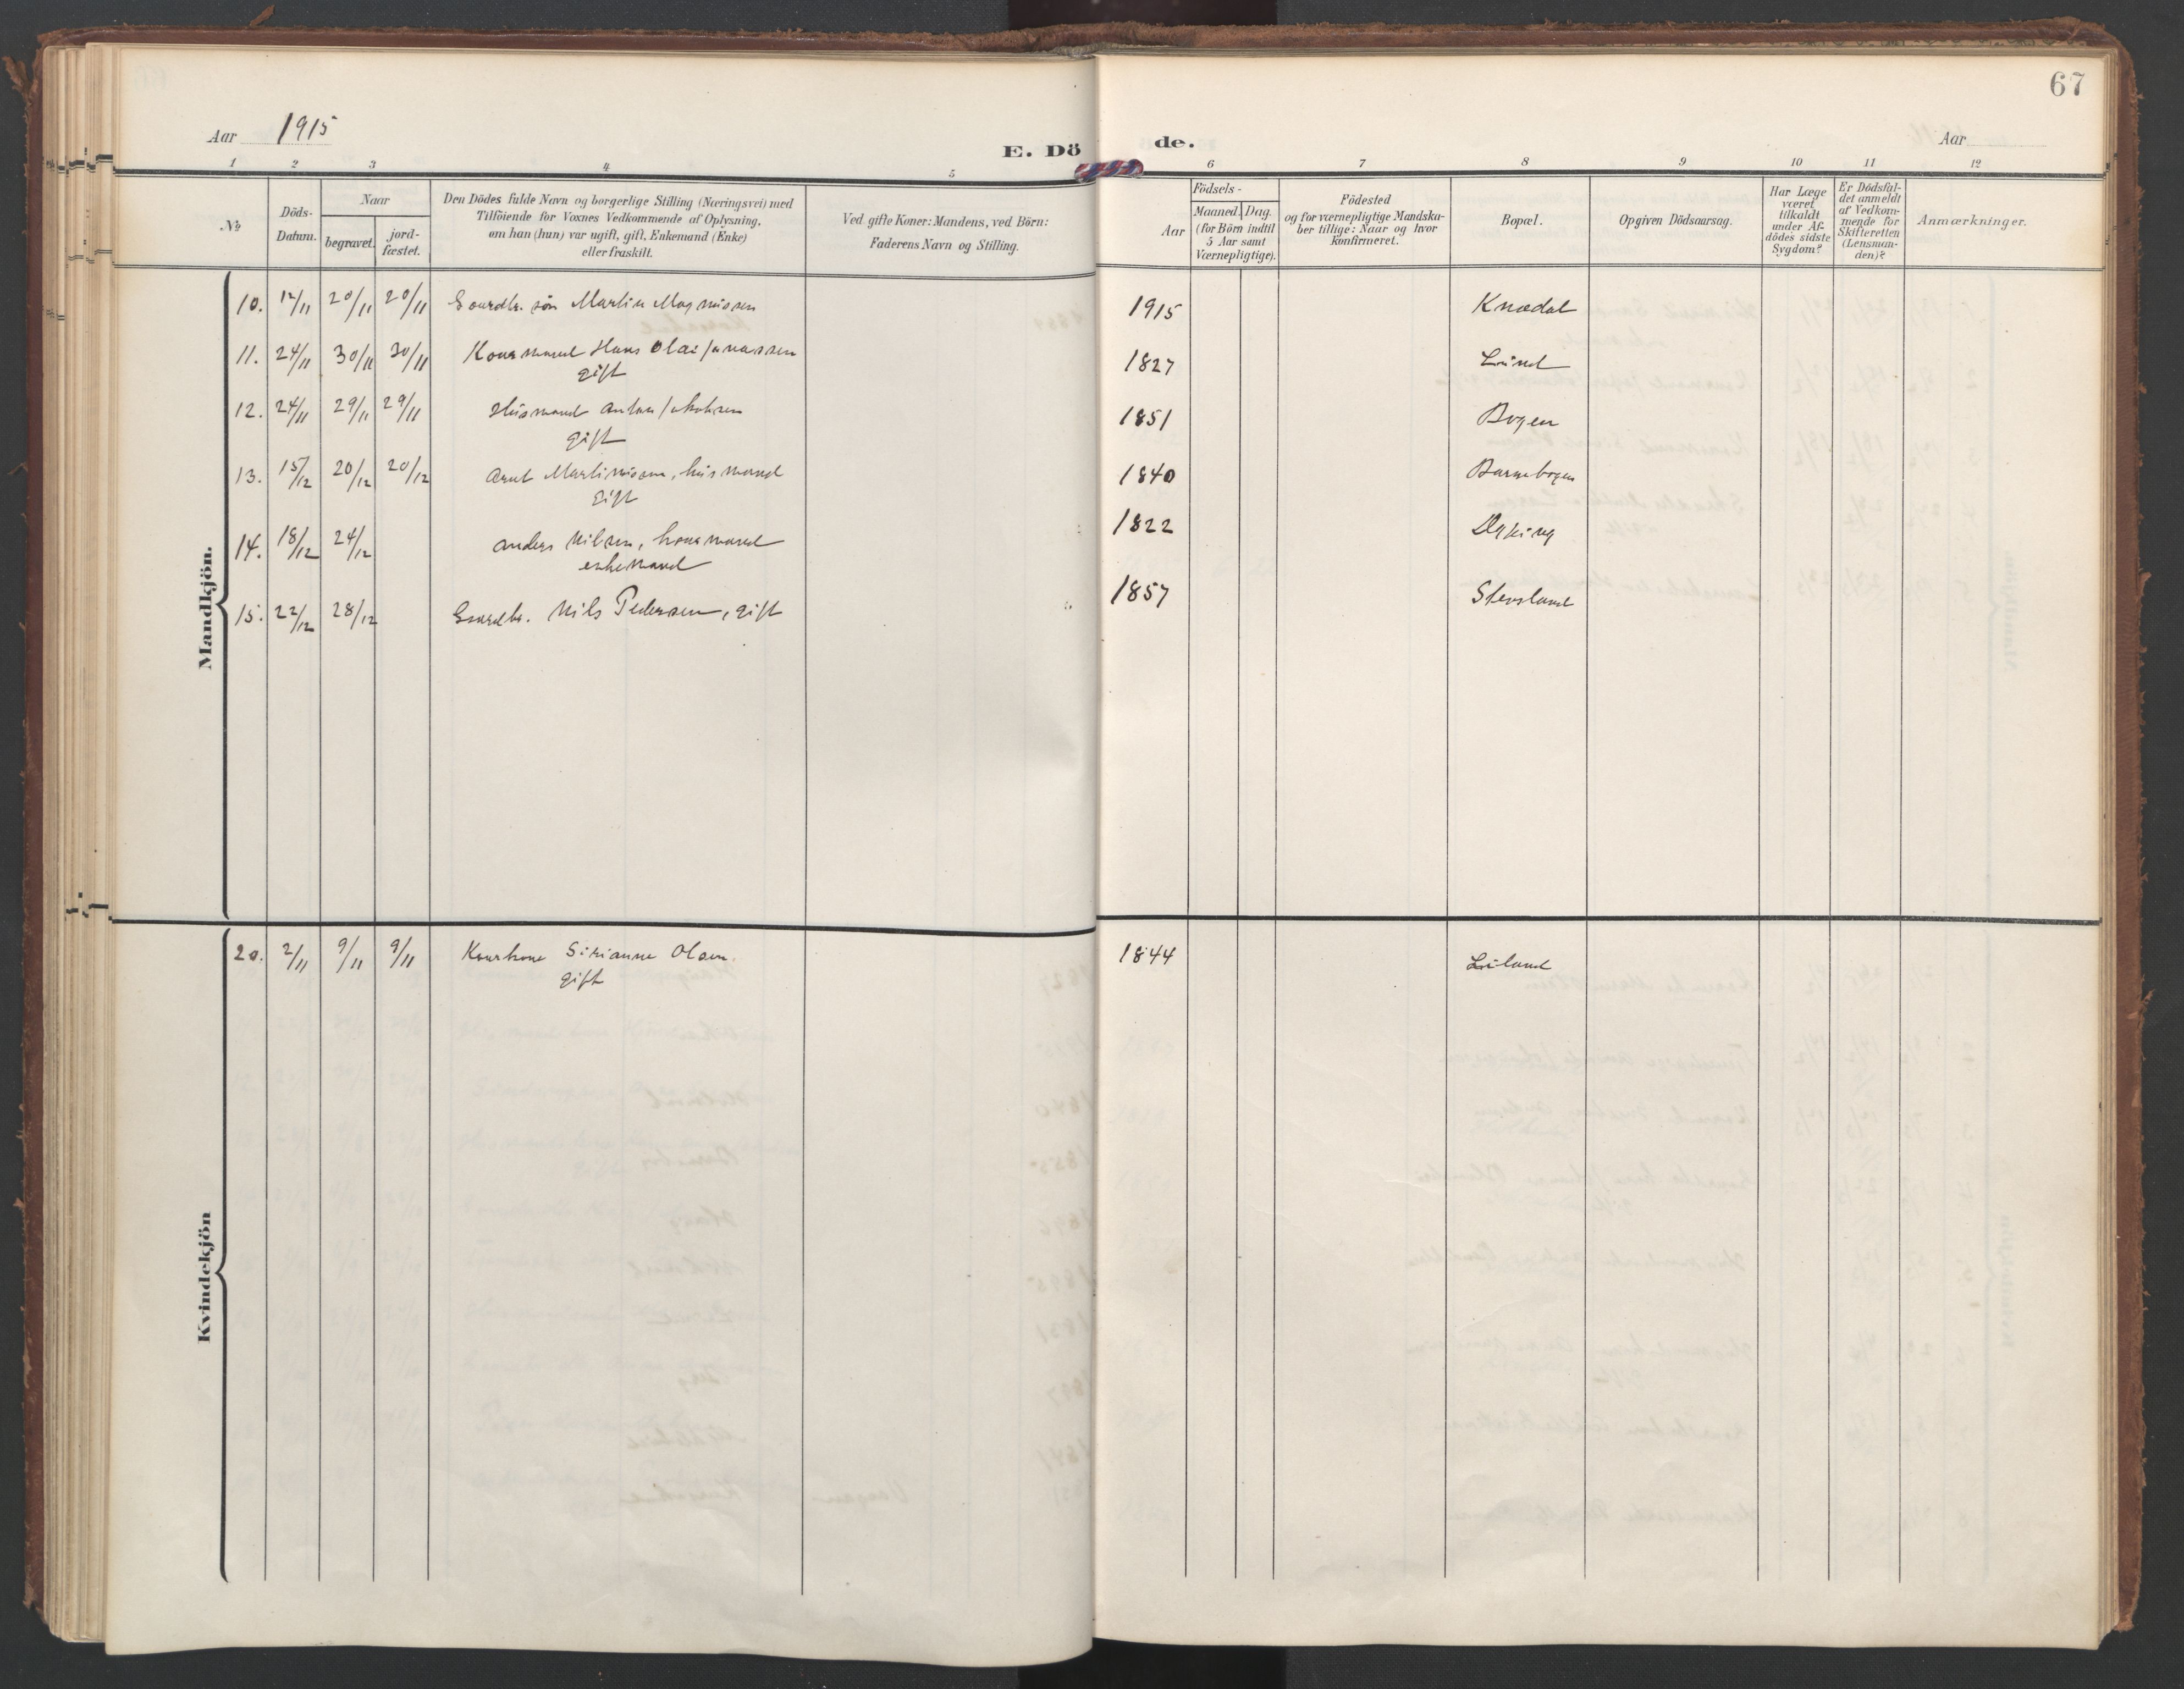 67
Aar 1915
E. Dö
de.
Aar
1 2 3 4 5 6 7 8 9 10 11 12
№
Döds-
Datum.
Naar
begravet.
jord-
fæstet.
Den Dödes fulde Navn og borgerlige Stilling (Næringsvei) med
Tilföiende for Voxnes Vedkommende af Oplysning,
om han (hun) var ugift, gift, Enkemand (Enke)
eller fraskilt.
Ved gifte Koner: Mandens, ved Börn:
Faderens Navn og Stilling.
Födsels-
Aar
Maaned. Dag.
(for Börn indtil
5 Aar samt
Værnepligtige).
Födested
og for værnepligtige Mandska-
ber tillige: Naar og hvor
konfirmeret.
Bopæl.
Opgiven Dödsaarsag.
Har Læge
været
tilkaldt
under Af-
dödes sidste
Sygdom?
Er Dödsfal-
det anmeldt
af Vedkom-
mende for
Skifteretten
(Lensman-
den)?
Anmærkninger.
Mandkjön.
10. 12/11 20/11 20/11 Gaardbr. søn Martin Magnussen 1915 Knædal
11. 24/11 30/11 30/11 Kaarmand Hans Olai Jonassen 1827 Lund
gift
12. 24/11 29/11 29/11 Husmand Anton Jakobsen 1851 Bogen
gift
13. 15/12 20/12 20/12 Arnt Martinison, husmand 1840 Barnebogen
gift
14. 18/12 24/12 Anders Nilsen, kaarmand 1822
enkemand
15. 22/12 28/12 Gaardbr. Nils Pedersen, gift 1857 Stensland
Kvindekjön
20. 2/11 9/11 9/11 Kaarkone Sirianne Olsen. 1844 Liland
gift